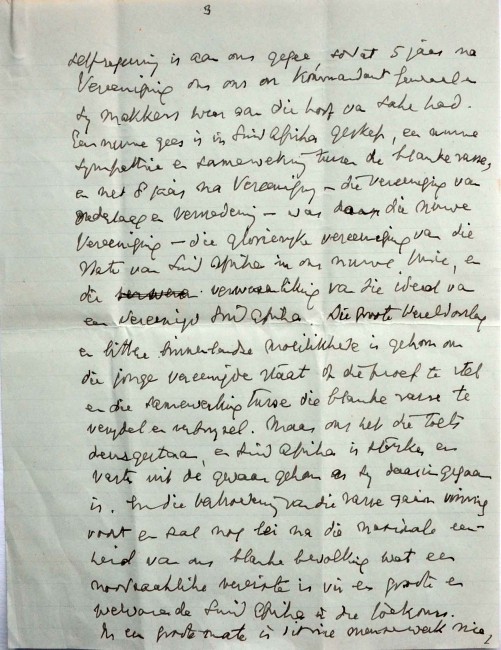 3
selfregering is aan ons gegee, sodat 5 jaar na
Vereeniging ons ons ou Kommandant Generaal en
sy makkers weer aan die hoof van sake had.
Een nuwe gees is in Suid Afrika geskep, een nuwe
sympathie en samewerking tussen de blanke rasse,
en net 8 jaar na Vereeniging – die vereeniging van
nederlaag en vernedering – was daar die nuwe
Vereeniging – die glorieryke vereeniging van die
State van Suid Afrika in ons nuwe Unie, en
die verwesenliking van die ideaal van
een Vereenigd Suid Afrika. Die groote Wereldoorlog
en bittere binnenlandse moeilikhede is gekom om
die jonge vereenigde Staat op die proef te stel
en die samewerking tussen die blanke rasse te
verydel en verbrysel. Maar ons het die toets
deurgestaan, en Suid Afrika is sterker en
vaster uit die gevaar gekom as sy daarin gegaan
is. En die verbroedering van die rasse gaan
voort en sal nog lei na die nasionale een-
heid van ons blanke bevolking wat een
noodsaaklike vereiste is vir en groote en
welvarende Suid Afrika in die toekoms.
In een groote mate is dit nie mensewerk nie,